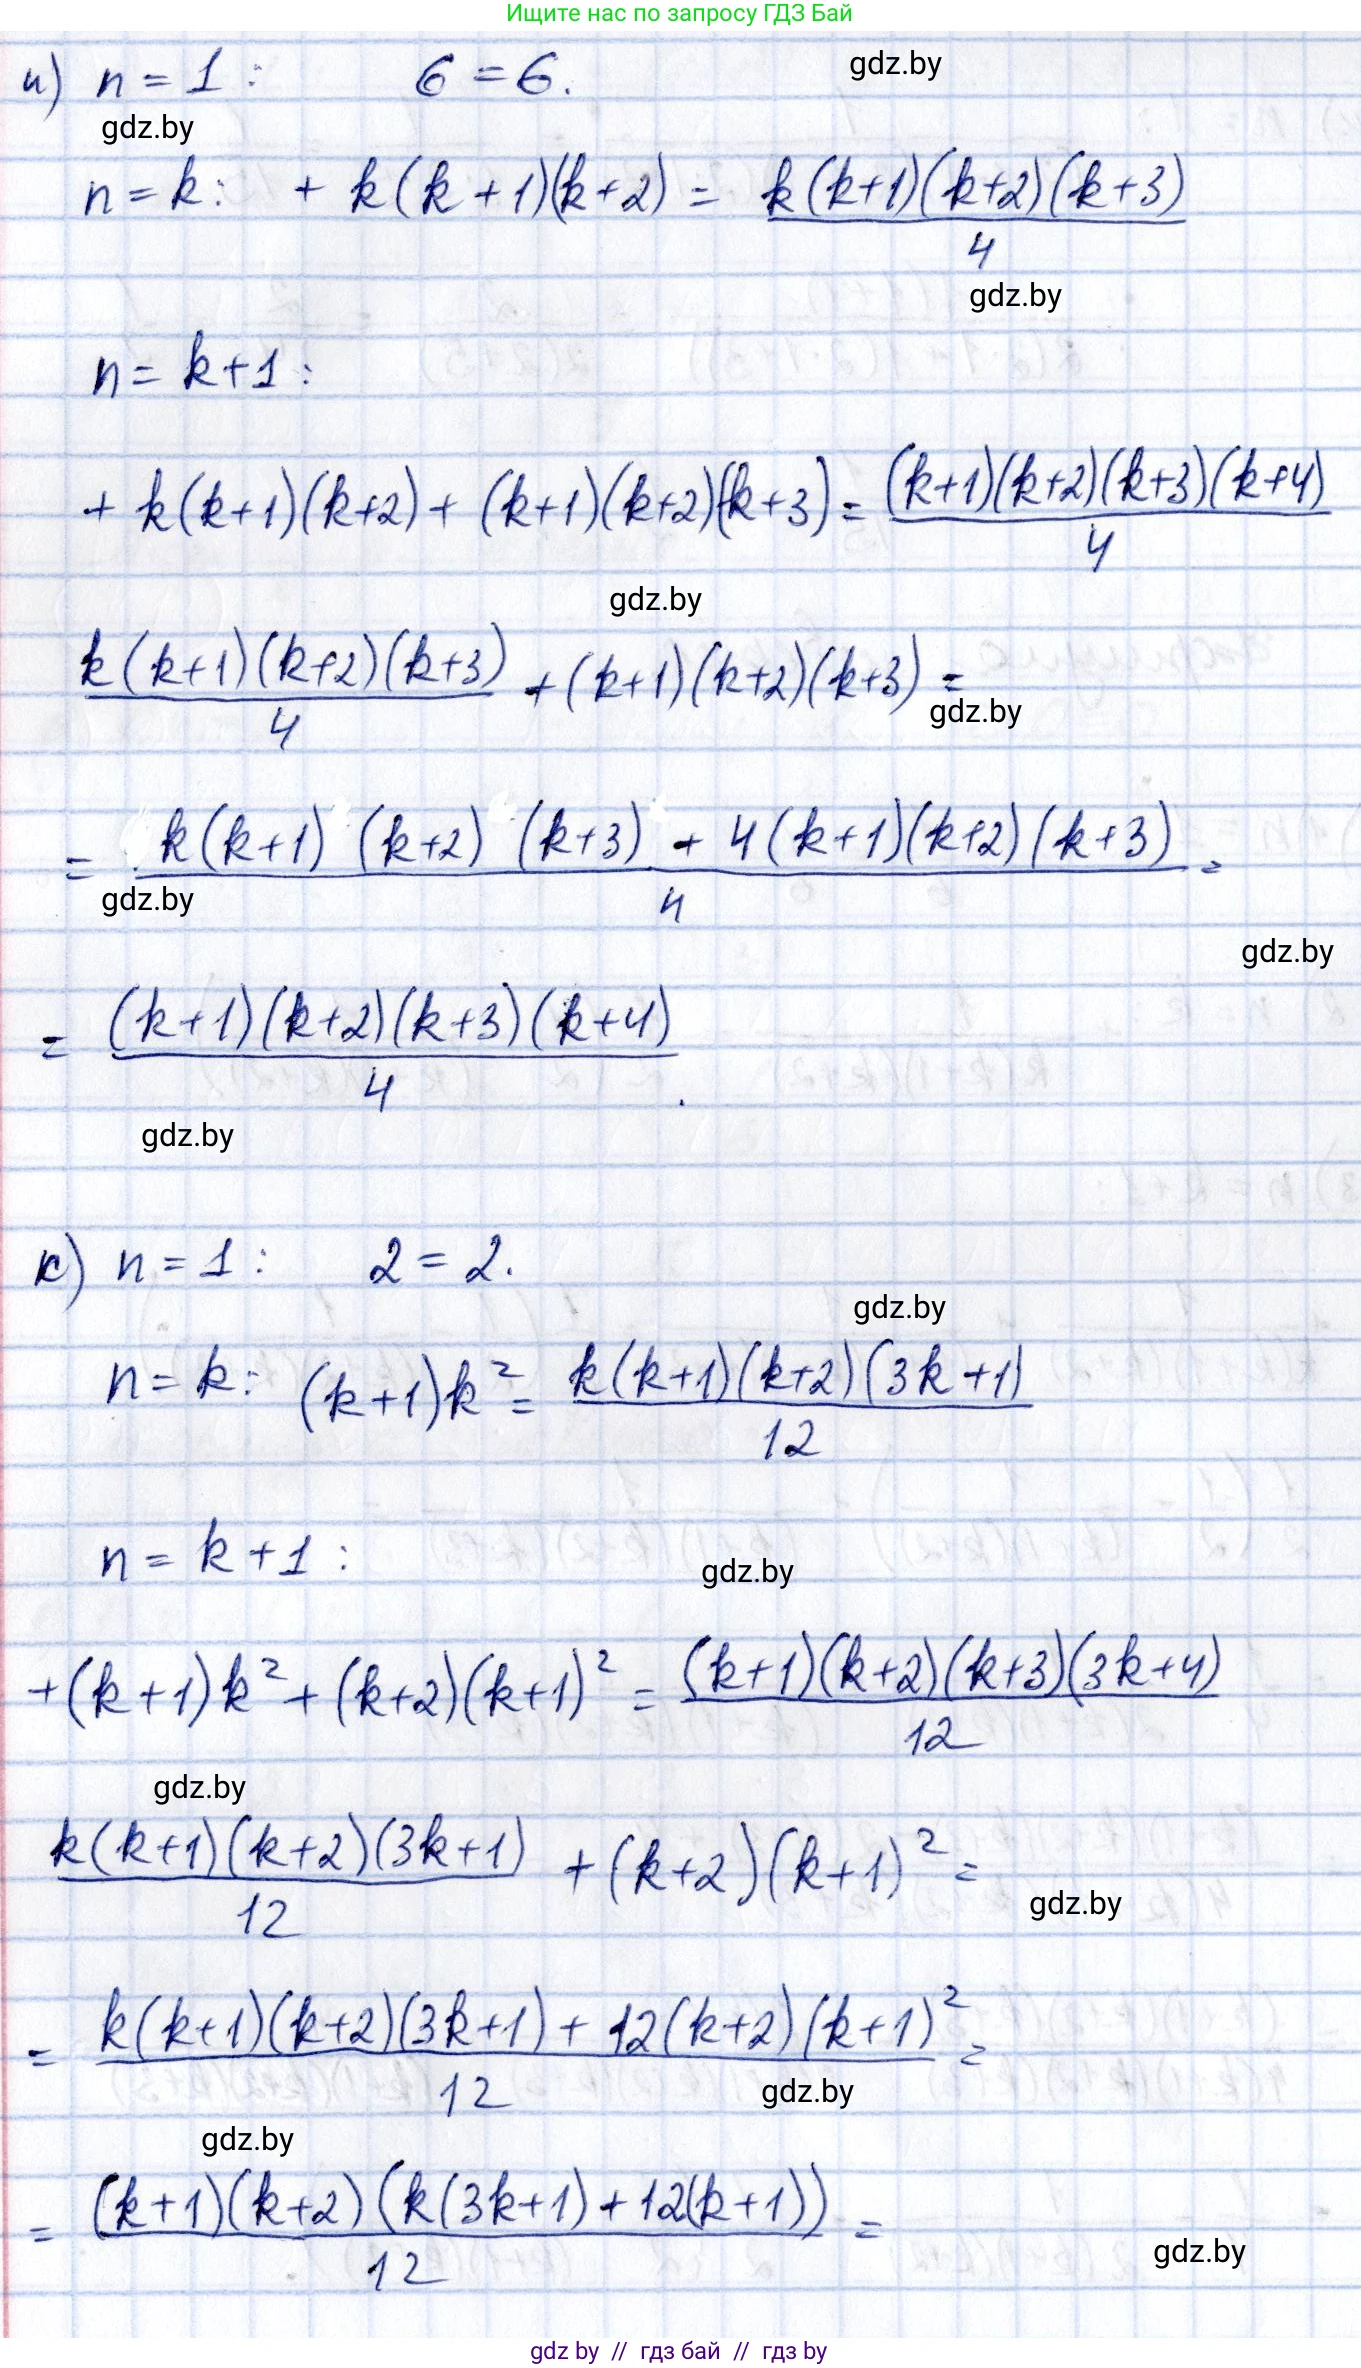 Ищите нас по запросу ГДЗ Бай
и) n = 1 : 6 = 6.
gdz.by
gdz.by
n = k: + k(k+1)(k+2) = k(k+1)(k+2)(k+3)
4
gdz.by
n = k+1 :
+ k(k+1)(k+2) + (k+1)(k+2)(k+3) = (k+1)(k+2)(k+3)(k+4)
4
gdz.by
k(k+1)(k+2)(k+3) + (k+1)(k+2)(k+3) =
4
gdz.by
= k(k+1) (k+2) (k+3) + 4(k+1)(k+2)(k+3) =
4
gdz.by
gdz.by
= (k+1)(k+2)(k+3)(k+4)
4 .
gdz.by
к) n = 1 : 2 = 2.
gdz.by
n = k: (k+1)k² = k(k+1)(k+2)(3k+1)
12
n = k+1 :
gdz.by
+(k+1)k² + (k+2)(k+1)² = (k+1)(k+2)(k+3)(3k+4)
12
gdz.by
k(k+1)(k+2)(3k+1) + (k+2)(k+1)² =
12
gdz.by
= k(k+1)(k+2)(3k+1) + 12(k+2)(k+1)² =
12
gdz.by
gdz.by
= (k+1)(k+2)(k(3k+1) + 12(k+1)) =
12
gdz.by
gdz by // гдз бай // гдз by